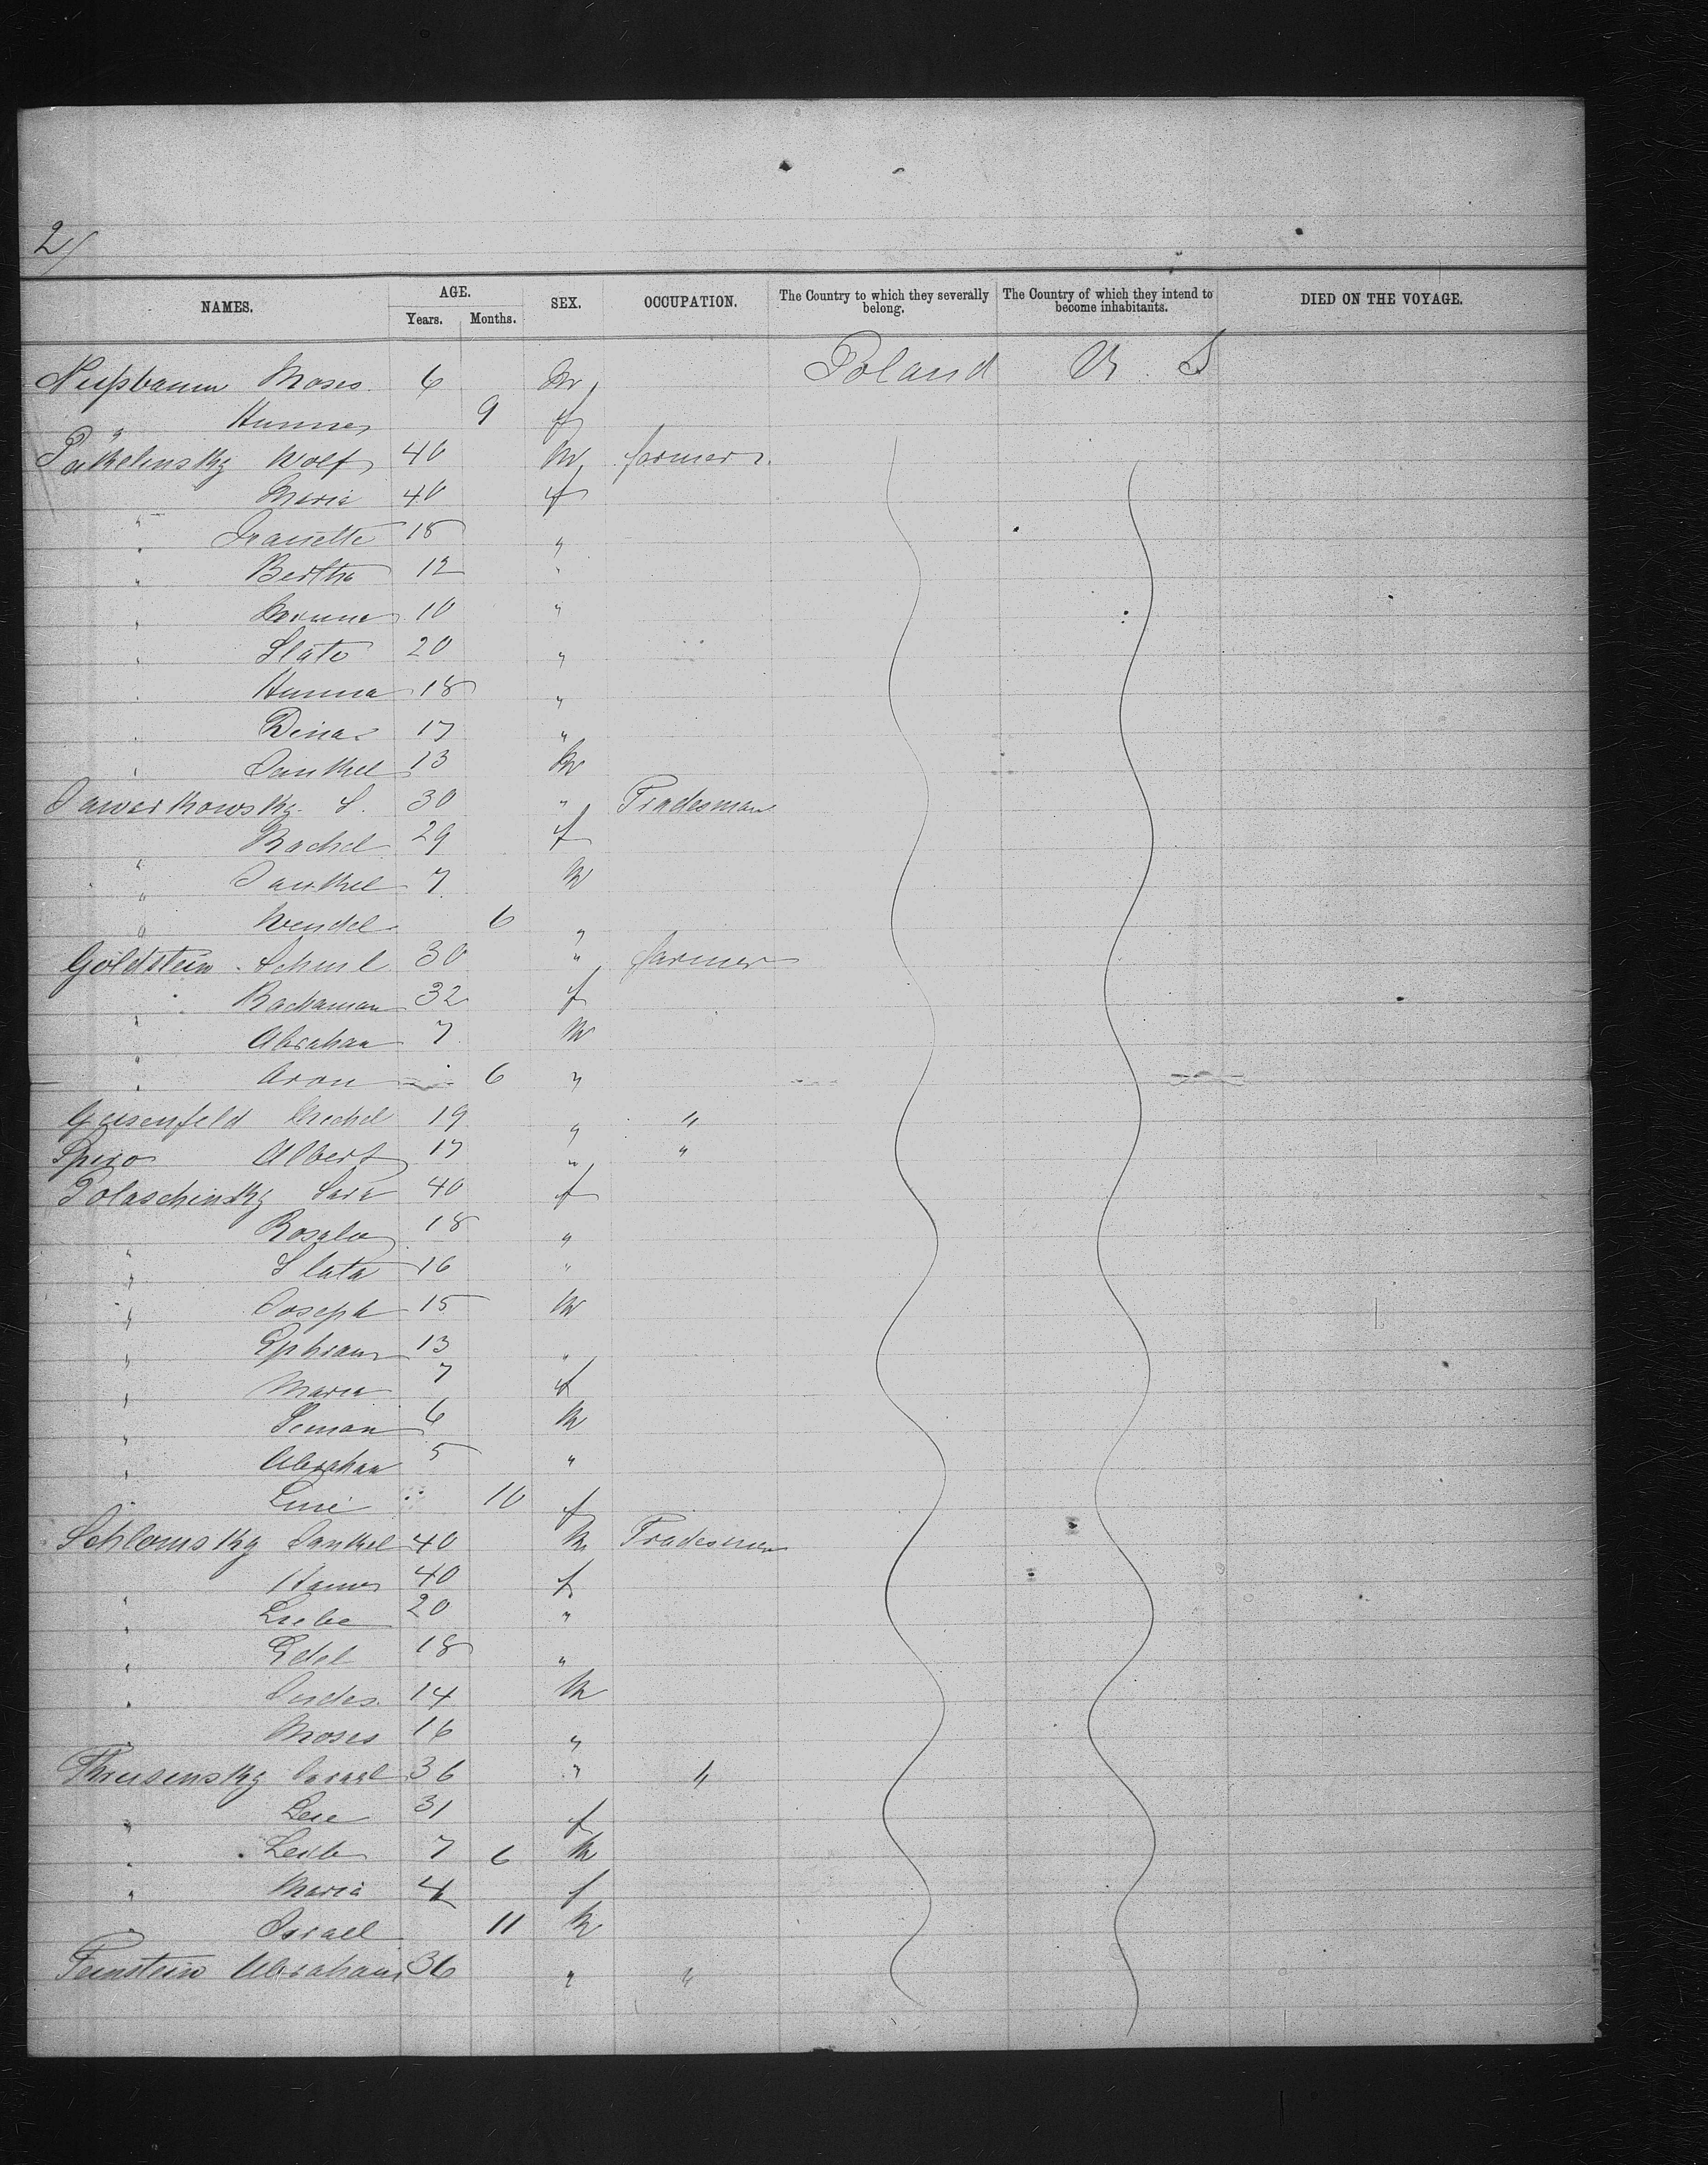 2/
NAMES. AGE. Years. Months. SEX. OCCUPATION. The Country to which they severally belong. The Country of which they intend to become inhabitants. DIED ON THE VOYAGE.
Nußbaum Moses 6 M Poland U. S
" Hanne 9 f
Wolf 40 M farmer
" Maria 40 f
" 18 "
" Bertha 12 "
" 10 "
" Slate 20 "
" Hanna 18 "
" Dina 17 "
" Jankel 13 M
Jawerkowsky S. 30 " Tradesman
" Rachel 29 f
" Jankel 7 M
" Mendel 6 "
Goldstein 30 " farmer
" 32 f
" Abraham 7 M
" Aron 6 "
Michel 19 " "
Spiro Albert 17 " "
Polaschinsky Sara 40 f
" 18 "
" Slata 16 "
" Joseph 15 M
" Ephraim 13 "
" Maria 7 f
" 6 M
" Abraham 5 "
" 10 f
Schlomsky Jankel 40 M Tradesman
" 40 f
" Liebe 20 "
" Edel 18 "
" 14 M
" Moses 16 "
Israel 36 " "
" 31 f
" Leib 7 6 M
" Maria 4 f
" Israel 11 M
Feinstein Abraham 36 " "